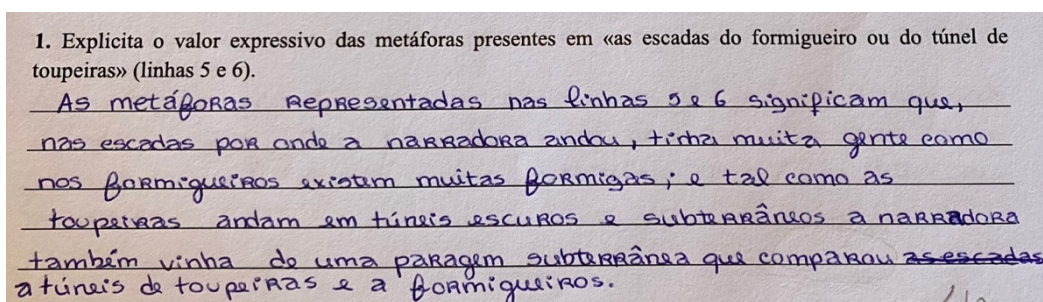 1. Explicita o valor expressivo das metáforas presentes em «as escadas do formigueiro ou do túnel de
toupeiras» (linhas 5 e 6).
As metáforas representadas nas linhas 5 e 6 significam que,
nas escadas por onde a narradora andou, tinha muita gente como
nos formigueiros existem muitas formigas; e tal como as
toupeiras andam em túneis escuros e subterrâneos a narradora
também vinha de uma paragem subterrânea que comparou as escadas
a túneis de toupeiras e a formigueiros.